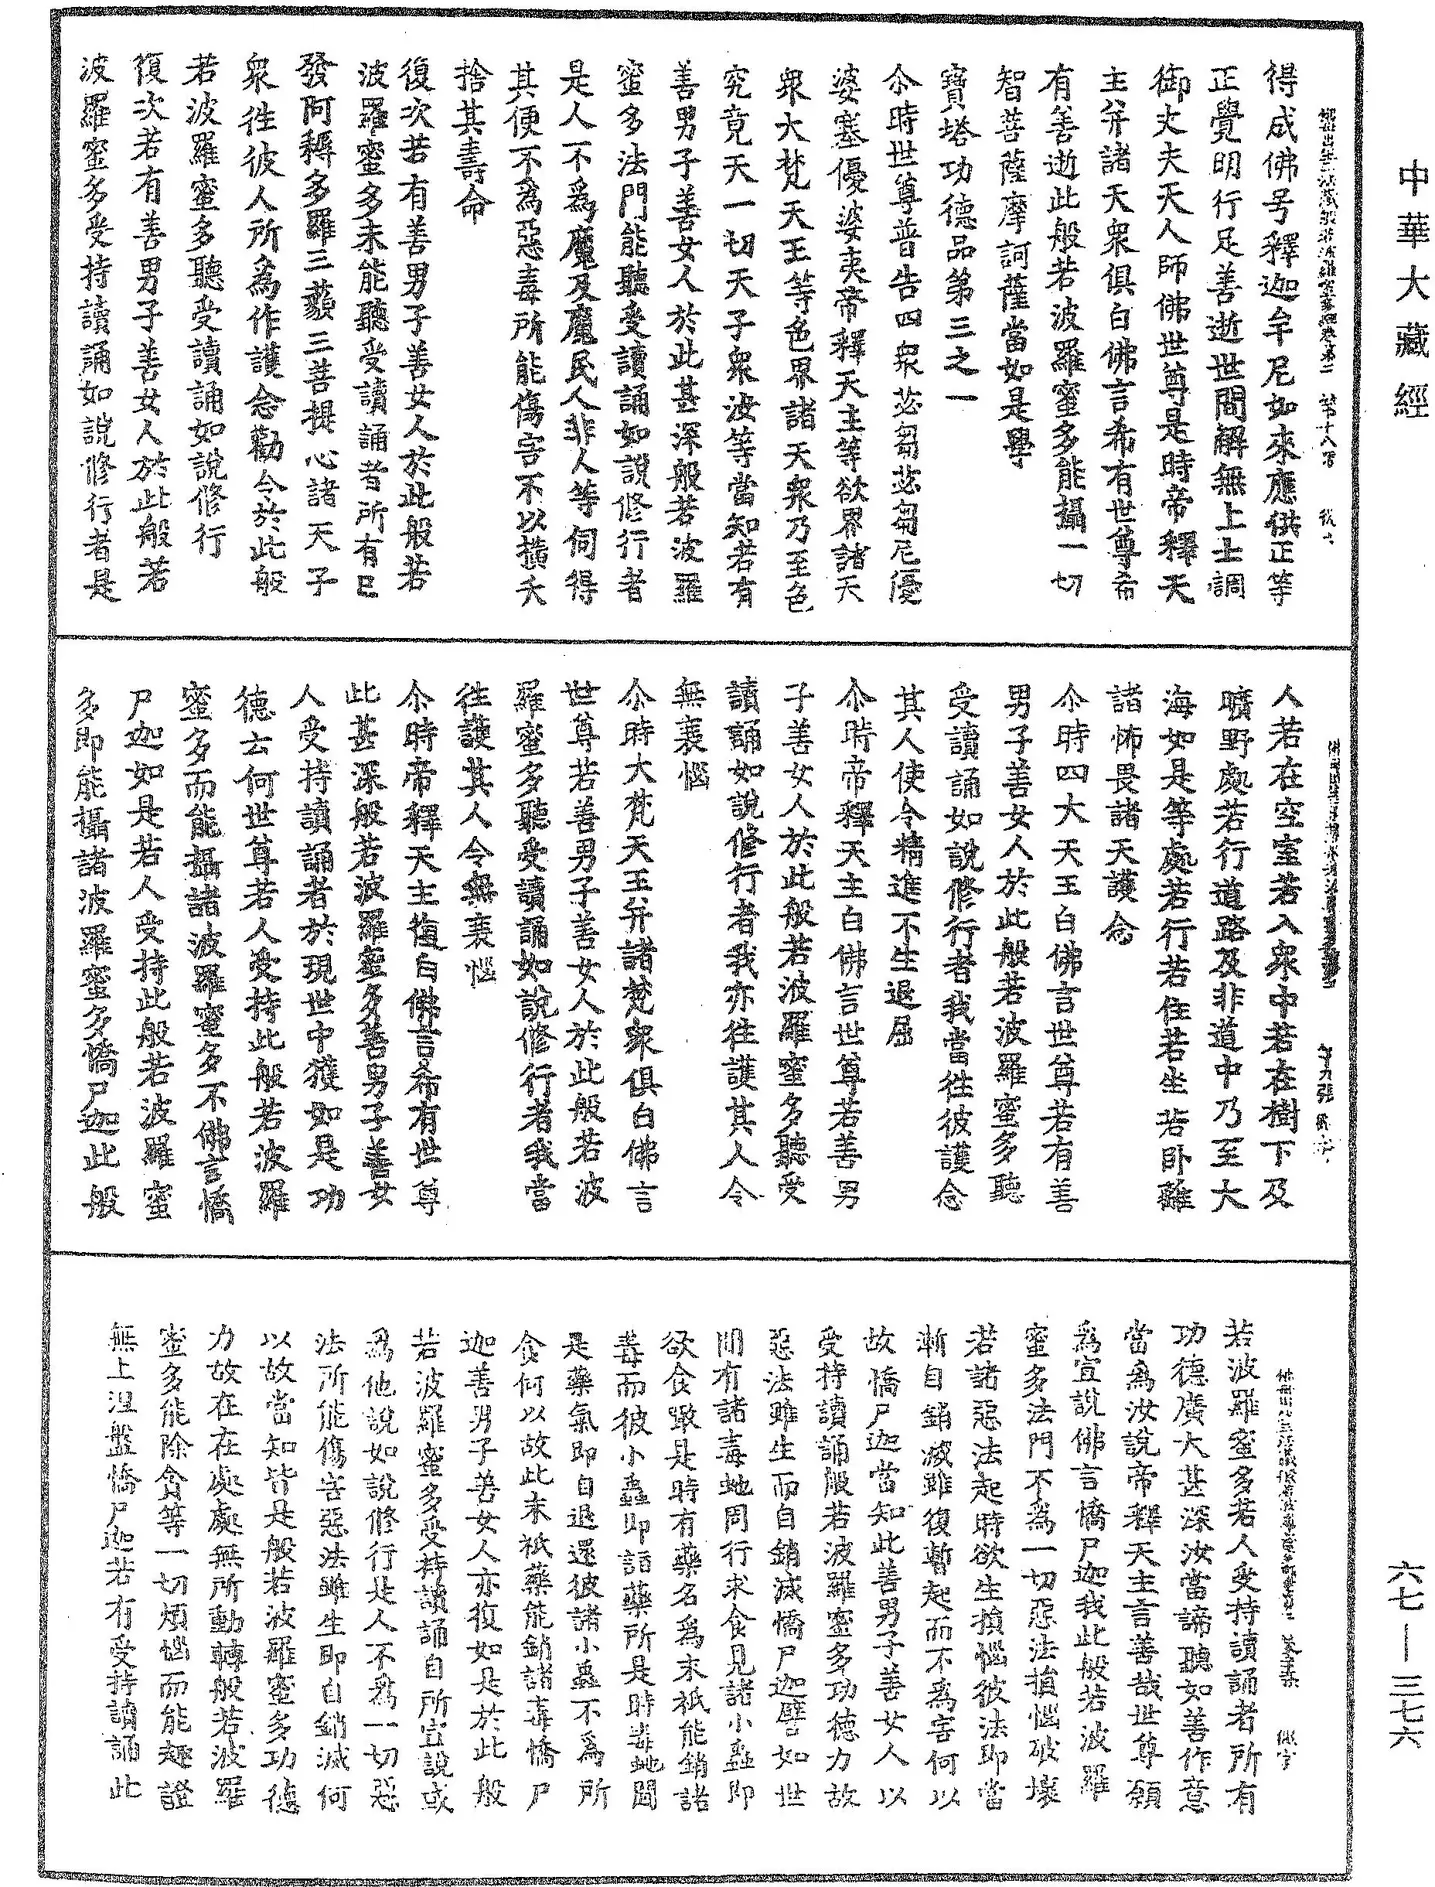 中華大藏經
得成佛号釋迦牟尼如來應供正等
正覺明行足善逝世間解無上士調
御丈夫天人師佛世尊是時帝釋天
主并諸天衆俱白佛言希有世尊希
有善逝此般若波羅蜜多能攝一切
智菩薩摩訶薩當如是學
寶塔功德品第三之一
尒時世尊普告四衆苾芻苾芻尼優
婆塞優婆夷帝釋天主等欲界諸天
衆大梵天王等色界諸天衆乃至色
究竟天一切天子衆汝等當知若有
善男子善女人於此甚深般若波羅
蜜多法門能聽受讀誦如說修行者
是人不爲魔及魔民人非人等伺得
其便不爲惡毒所能傷害不以橫夭
捨其壽命
復次若有善男子善女人於此般若
波羅蜜多未能聽受讀誦者所有已
發阿耨多羅三藐三菩提心諸天子
衆徃彼人所爲作護念勸令於此般
若波羅蜜多聽受讀誦如說修行
復次若有善男子善女人於此般若
波羅蜜多受持讀誦如說修行者是
人若在空室若入衆中若在樹下及
曠野處若行道路及非道中乃至大
海如是等處若行若住若坐若卧離
諸怖畏諸天護念
尒時四大天王白佛言世尊若有善
男子善女人於此般若波羅蜜多聽
受讀誦如說修行者我當徃彼護念
其人使令精進不生退屈
尒時帝釋天主白佛言世尊若善男
子善女人於此般若波羅蜜多聽受
讀誦如說修行者我亦往護其人令
無衰惱
尒時大梵天王并諸梵衆俱白佛言
世尊若善男子善女人於此般若波
羅蜜多聽受讀誦如說修行者我當
徃護其人令無衰惱
尒時帝釋天主復白佛言希有世尊
此甚深般若波羅蜜多善男子善女
人受持讀誦者於現世中獲如是功
德云何世尊若人受持此般若波羅
蜜多而能攝諸波羅蜜多不佛言憍
尸迦如是若人受持此般若波羅蜜
多即能攝諸波羅蜜多憍尸迦此般
若波羅蜜多若人受持讀誦者所有
功德廣大甚深汝當諦聽如善作意
當爲汝說帝釋天主言善哉世尊願
爲宣說佛言憍尸迦我此般若波羅
蜜多法門不爲一切惡法損惱破壞
若諸惡法起時欲生損惱彼法即當
漸自銷滅雖復暫起而不爲害何以
故憍尸迦當知此善男子善女人以
受持讀誦般若波羅蜜多功德力故
惡法雖生而自銷滅憍尸迦譬如世
間有諸毒虵周行求食見諸小蟲即
欲食噉是時有藥名爲末祇能銷諸
毒而彼小蟲即詣藥所是時毒虵聞
是藥氣即自退還彼諸小蟲不爲所
食何以故此末祇藥能銷諸毒憍尸
迦善男子善女人亦復如是於此般
若波羅蜜多受持讀誦自所宣說或
爲他說如說修行是人不爲一切惡
法所能傷害惡法雖生即自銷滅何
以故當知皆是般若波羅蜜多功德
力故在在處處無所動轉般若波羅
蜜多能除貪等一切煩惱而能趣證
無上涅盤憍尸迦若有受持讀誦此
六七—三七六